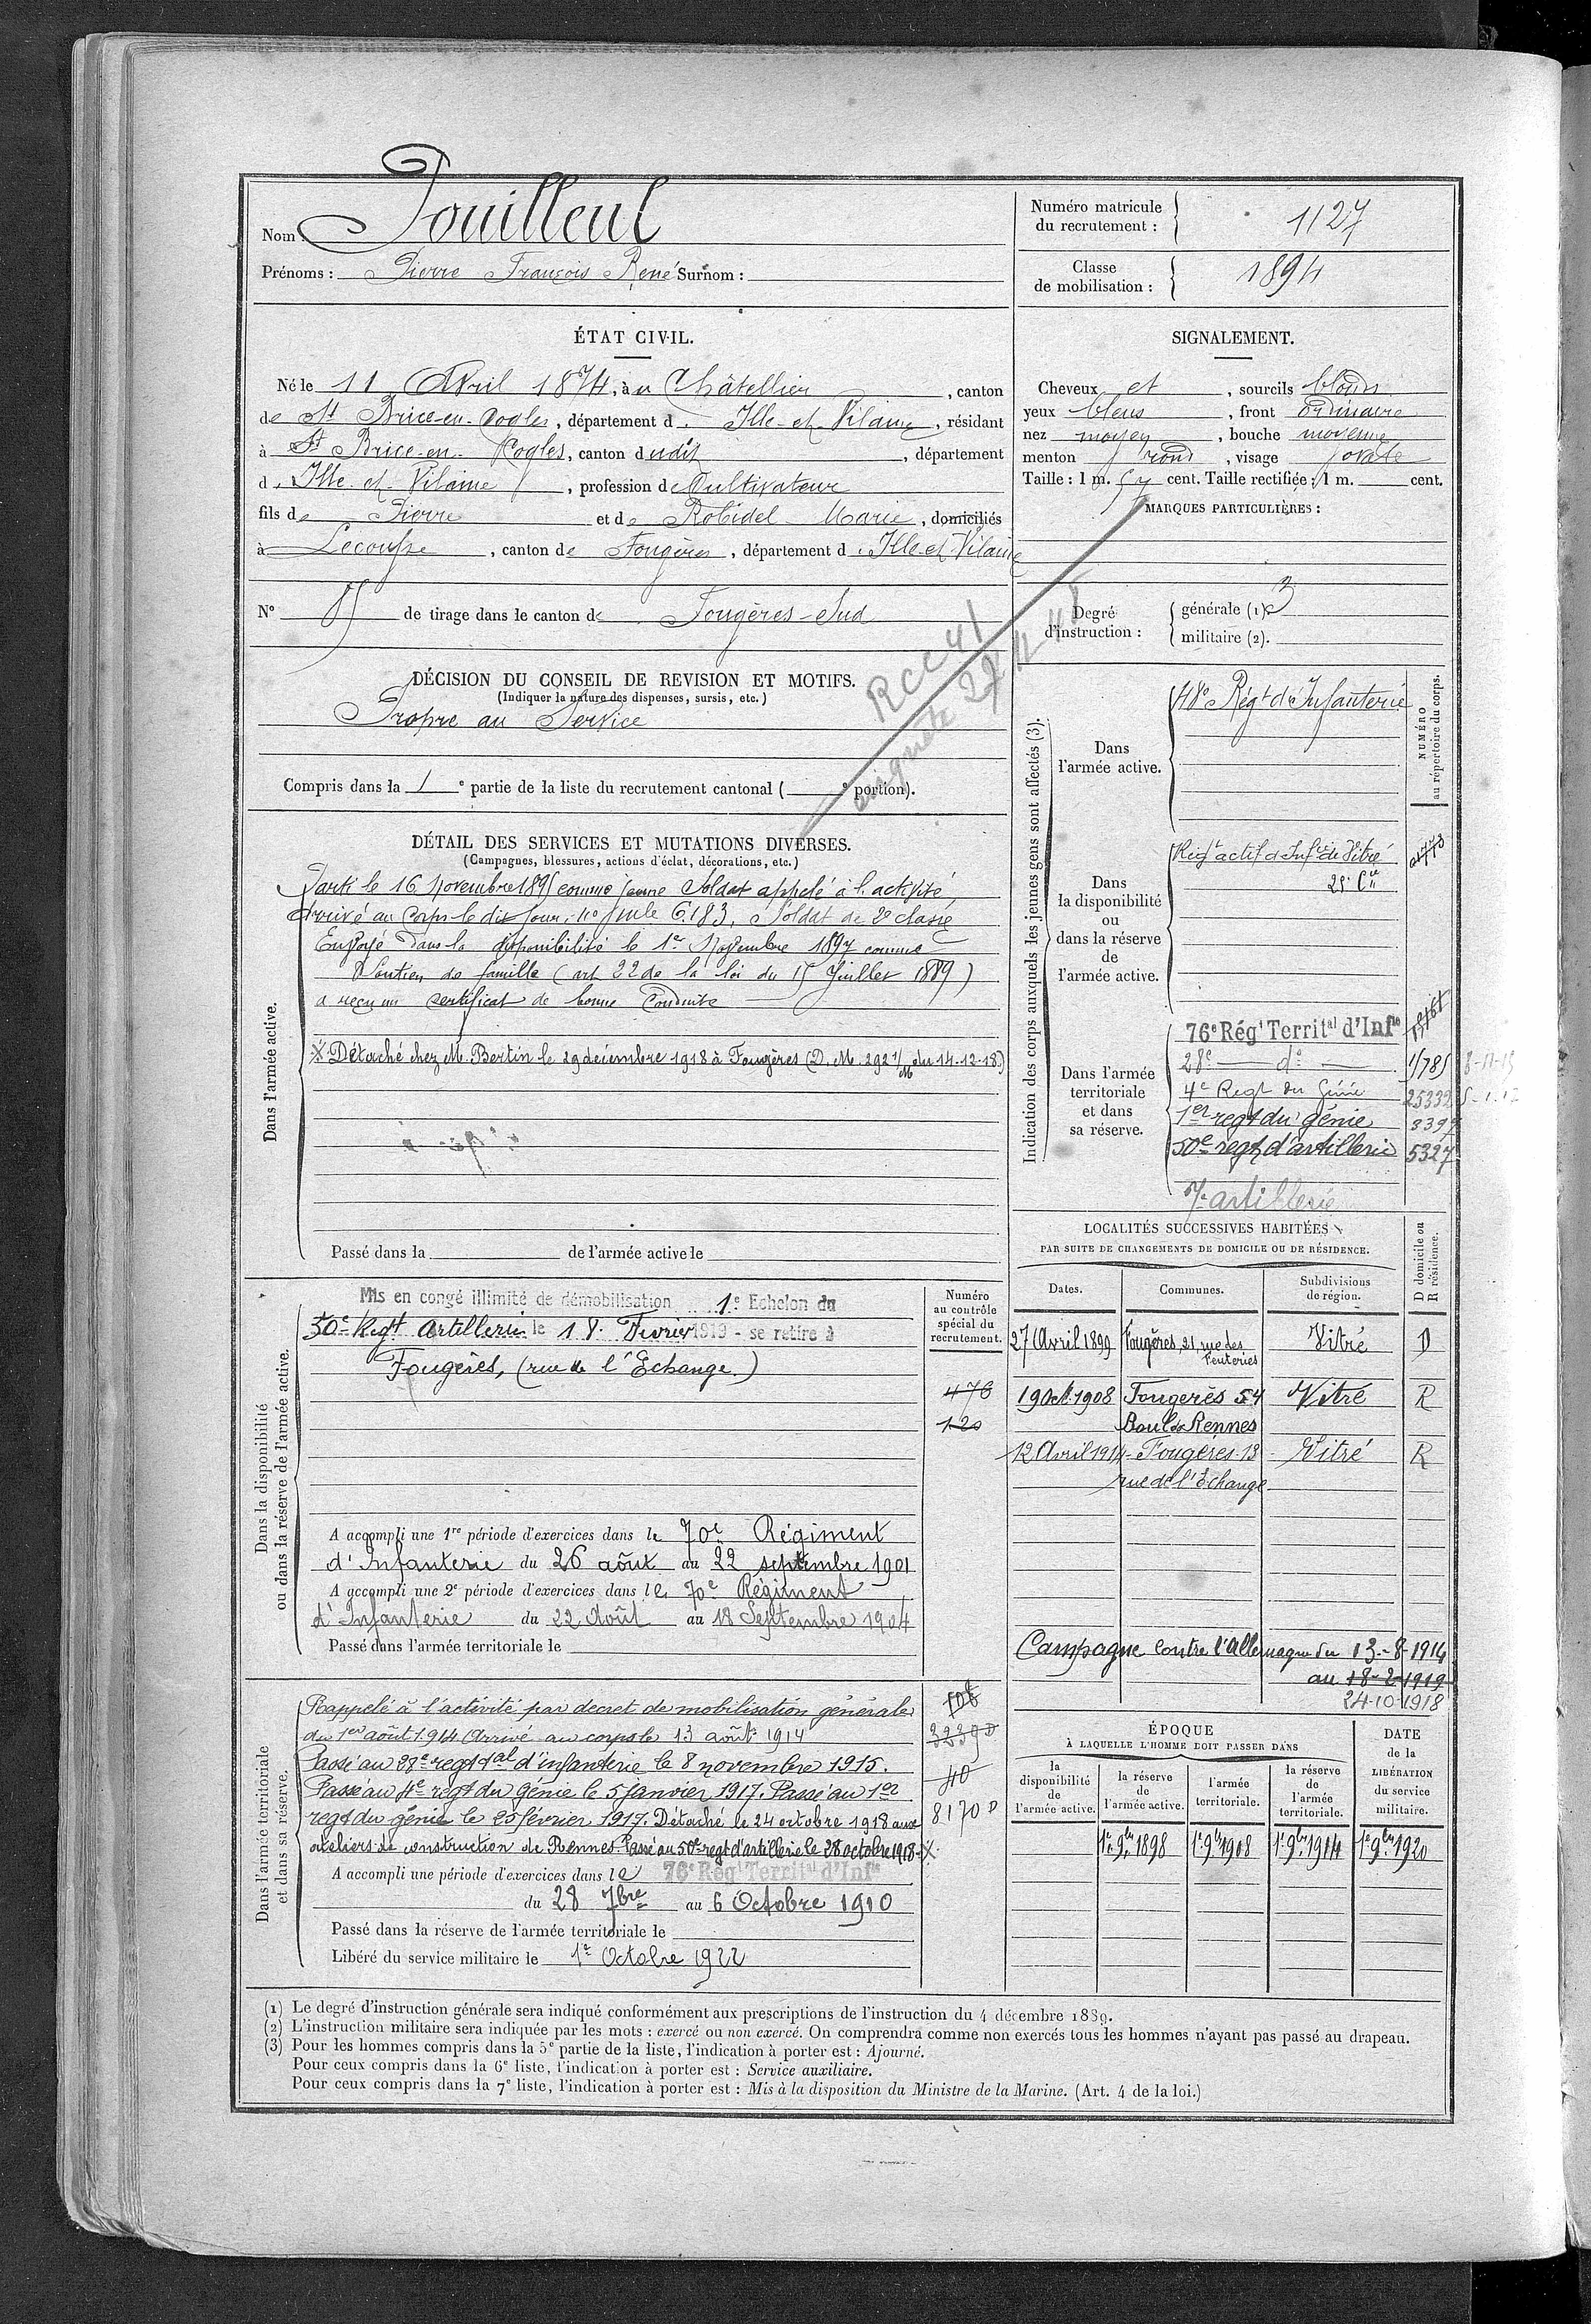 Nom : Pouilleul
Prénoms : Pierre François René Surnom :
Numéro matricule du recrutement : 1127
Classe de mobilisation : 1894
ÉTAT CIVIL.
Né le 11 Avril 1874, à u Châtellier, canton
de St Brice-en-Cogles, département d'Ille-et-Vilaine, résidant
à St Brice-en-Cogles, canton dudit, département
d'Ille-et-Vilaine, profession de Cultivateur
fils de Pierre et de Robidel Marie, domiciliés
à Lecousse, canton de Fougères, département d'Ille-et-Vilaine
N° 85 de tirage dans le canton de Fougères-Sud
SIGNALEMENT.
Cheveux et, sourcils blonds
yeux bleus, front ordinaire
nez moyen, bouche moyenne
menton rond, visage ovale
Taille : 1 m. 57 cent. Taille rectifiée : 1 m. cent.
MARQUES PARTICULIÈRES :
Degré d'instruction : générale (1) 3
militaire (2).
DÉCISION DU CONSEIL DE REVISION ET MOTIFS.
(Indiquer la nature des dispenses, sursis, etc.)
Propre au Service
Compris dans la 1e partie de la liste du recrutement cantonal ( e portion).
RCC 41
DÉTAIL DES SERVICES ET MUTATIONS DIVERSES.
(Campagnes, blessures, actions d'éclat, décorations, etc.)
Dans l'armée active.
Parti le 16 novembre 1895 comme jeune Soldat appelé à l'activité,
Arrivé au Corps le dit Jour. no mle 6.183, Soldat de 2e classe
Envoyé dans la disponibilité le 1er Novembre 1897 comme
Soutien de famille (art 22 de la loi du 15 Juillet 1889)
a reçu un certificat de bonne Conduite
X Détaché chez M. Bertin le 29 décembre 1918 à Fougères (D. M. 2921/M du 14-12-18)
Passé dans la de l'armée active le
Indication des corps auxquels les jeunes gens sont affectés (3).
NUMÉRO au répertoire du corps.
Dans l'armée active.
48e Régt d'Infanterie
Dans la disponibilité ou dans la réserve de l'armée active.
Régt actif d'Infrie de Vitré
25e Cie
Dans l'armée territoriale et dans sa réserve.
76e Régt Territal d'Infie
28e do 1/785 8-11-15
4e Regt du Génie 25332 5-1-17
1er regt du génie 8399
50e regt d'artillerie 5327
7e artillerie
LOCALITÉS SUCCESSIVES HABITÉES
PAR SUITE DE CHANGEMENTS DE DOMICILE OU DE RÉSIDENCE.
Dates. Communes. Subdivisions de région. D domicile ou R résidence.
27 Avril 1899 Fougères, 21, rue des Feuteries Vitré D
19 Oct. 1908 Fougerès 54 Vitré R
Boul de Rennes
12 Avril 1914 Fougères-13 Vitré R
rue de l'Echange
Campagne contre l'Allemagne du 13-8-1914
au 18-2-1919
24-10-1918
Dans la disponibilité ou dans la réserve de l'armée active.
Numéro au contrôle spécial du recrutement.
Mis en congé illimité de démobilisation 1e Echelon du
50e Regt Artillerie le 18 Fevrier 1919 - se retire à
Fougères, (rue de l'Echange)
476
120
A accompli une 1re période d'exercices dans le 70e Régiment
d'Infanterie du 26 août au 22 septembre 1901
A accompli une 2e période d'exercices dans le 70e Régiment
d'Infanterie du 22 Août au 18 Septembre 1904
Passé dans l'armée territoriale le
Dans l'armée territoriale et dans sa réserve.
Rappelé à l'activité par decret de mobilisation générale
du 1er août 1914 Arrivé au corps le 13 août 1914
Passé au 28e regt tal d'infanterie le 8 novembre 1915.
Passé au 4e regt du génie le 5 Janvier 1917. Passé au 1er
regt du génie le 25 février 1917. Détaché le 24 octobre 1918 aux
ateliers de construction de Rennes. Passé au 50e regt d'artillerie le 28 octobre 1918 - X
3239 D
40
8170 D
A accompli une période d'exercices dans le 76e Régt Territal d'Infie
du 28 7bre au 6 Octobre 1910
Passé dans la réserve de l'armée territoriale le
Libéré du service militaire le 1er Octobre 1922
ÉPOQUE
À LAQUELLE L'HOMME DOIT PASSER DANS
la disponibilité de l'armée active. la réserve de l'armée active. l'armée territoriale. la réserve de l'armée territoriale.
DATE de la LIBÉRATION du service militaire.
1er 9bre 1898 1er 9bre 1908 1er 9bre 1914 1er 9bre 1920
(1) Le degré d'instruction générale sera indiqué conformément aux prescriptions de l'instruction du 4 décembre 1889.
(2) L'instruction militaire sera indiquée par les mots : exercé ou non exercé. On comprendra comme non exercés tous les hommes n'ayant pas passé au drapeau.
(3) Pour les hommes compris dans la 5e partie de la liste, l'indication à porter est : Ajourné.
Pour ceux compris dans la 6e liste, l'indication à porter est : Service auxiliaire.
Pour ceux compris dans la 7e liste, l'indication à porter est : Mis à la disposition du Ministre de la Marine. (Art. 4 de la loi.)